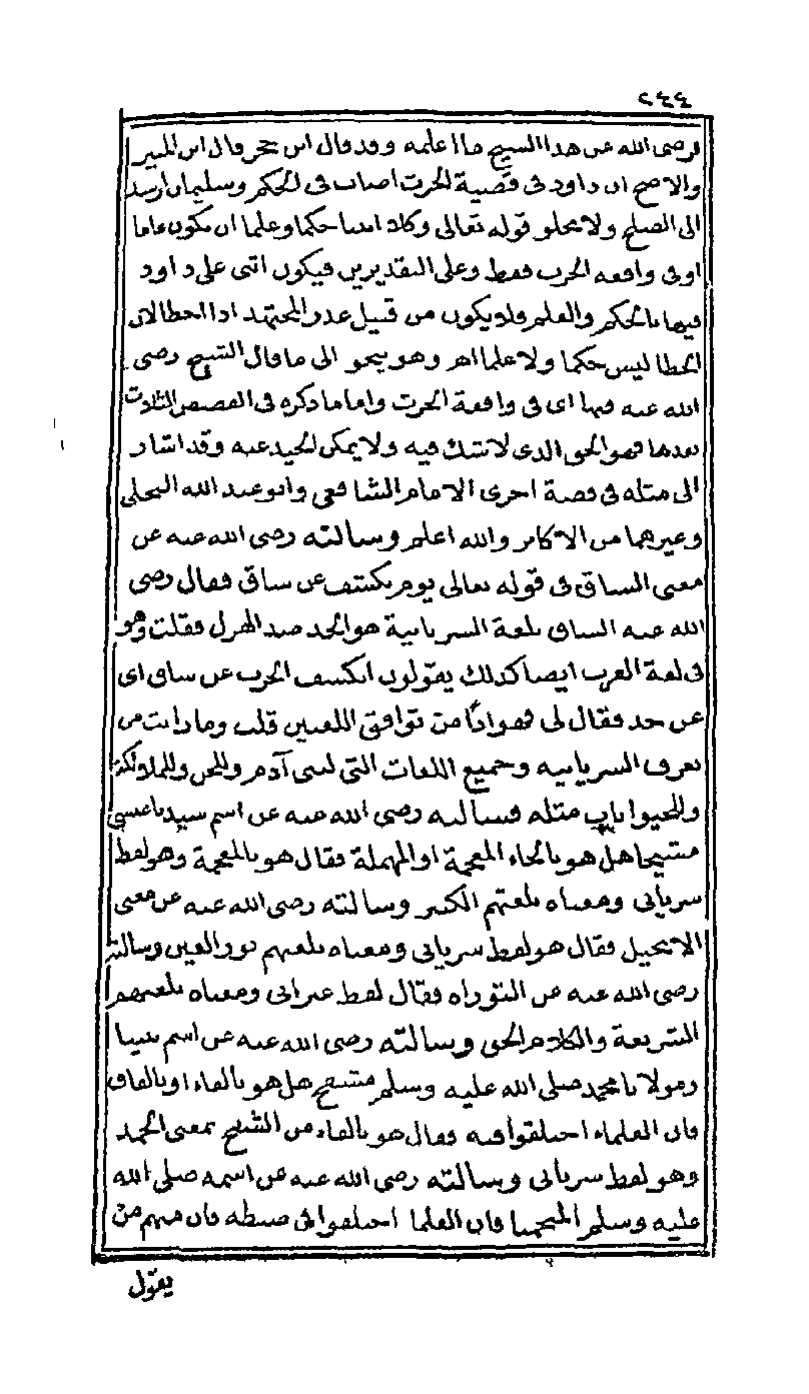 ٢٤٤
فرضى الله عن هذا الشيخ ما اعلمه وقد قال ابن حجر قال ابن المنير
والاصح ان داود فى قضية الحرث اصاب فى الحكم وسليمان ارشد
الى الصلح ولا يخلو قوله تعالى وكلا اتينا حكما وعلما ان يكون عاما
او فى واقعة الحرث فقط وعلى التقديرين فيكون اثنى على داود
فيها بالحكم والعلم فلا يكون من قبيل عذر المجتهد اذا اخطا لان
الخطا ليس حكما ولا علما اهر وهو ينحو الى ما قال الشيخ رضى
الله عنه فيها اى فى واقعة الحرث واما ما ذكره فى القصص الثلاث
بعدها فهو الحق الذى لا شك فيه ولا يمكن الحيد عنه وقد اشار
الى مثله فى قصة اخرى الامام الشافعى وابو عبد الله البجلى
وغيرهما من الاكابر والله اعلم وسالته رضى الله عنه عن
معنى الساق فى قوله تعالى يوم يكشف عن ساق فقال رضى
الله عنه الساق بلغة السريانية هو الجد ضد الهزل فقلت وهو
فى لغة العرب ايضا كذلك يقولون انكشف الحرب عن ساق اى
عن جد فقال لى فهو اذًا من توافق اللغتين قلت وما رايت من
يعرف السريانية وجميع اللغات التى لبنى آدم وللجن وللملائكة
وللحيوانات مثله فسالته رضى الله عنه عن اسم سيدنا عيسى
مشيخا هل هو بالخاء المعجمة او المهملة فقال هو بالمعجمة وهو لفظ
سريانى ومعناه بلغتهم الكبير وسالته رضى الله عنه عن معنى
الانجيل فقال هو لفظ سريانى ومعناه بلغتهم نور العين وسالته
رضى الله عنه عن التوراه فقال لفظ عبرانى ومعناه بلغتهم
الشريعة والكلام الحق وسالته رضى الله عنه عن اسم نبينا
ومولانا محمد صلى الله عليه وسلم مشفح هل هو بالفاء او بالقاف
فان العلماء اختلفوا فيه فقال هو بالفاء من الشفح بمعنى الحمد
وهو لفظ سريانى وسالته رضى الله عنه عن اسمه صلى الله
عليه وسلم المنحمنا فان العلما اختلفوا فى ضبطه فان منهم من
يقول